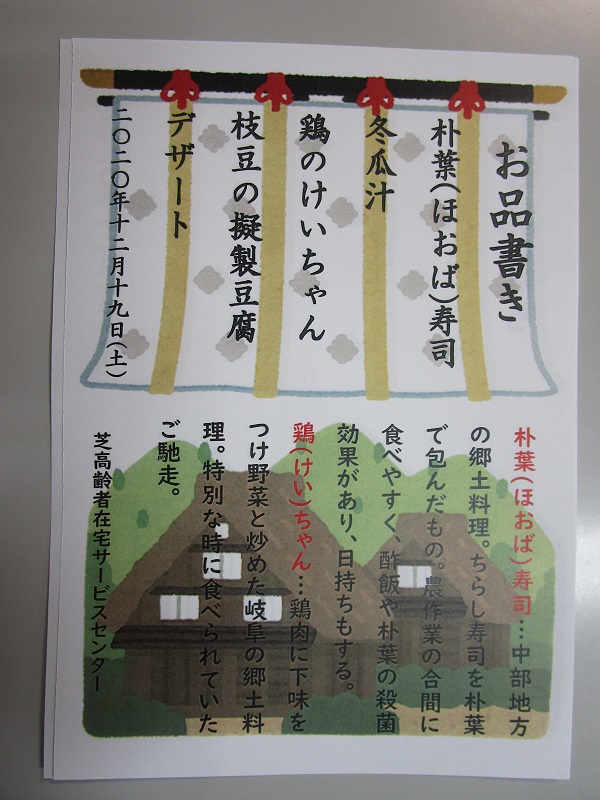 お品書き
朴葉(ほおば)寿司
冬瓜汁
鶏のけいちゃん
枝豆の擬製豆腐
デザート
二〇二〇年十二月十九日(土)
朴葉(ほおば)寿司…中部地方
の郷土料理。ちらし寿司を朴葉
で包んだもの。農作業の合間に
食べやすく、酢飯や朴葉の殺菌
効果があり、日持ちもする。
鶏(けい)ちゃん…鶏肉に下味を
つけ野菜と炒めた岐阜の郷土料
理。特別な時に食べられていた
ご馳走。
芝高齢者在宅サービスセンター